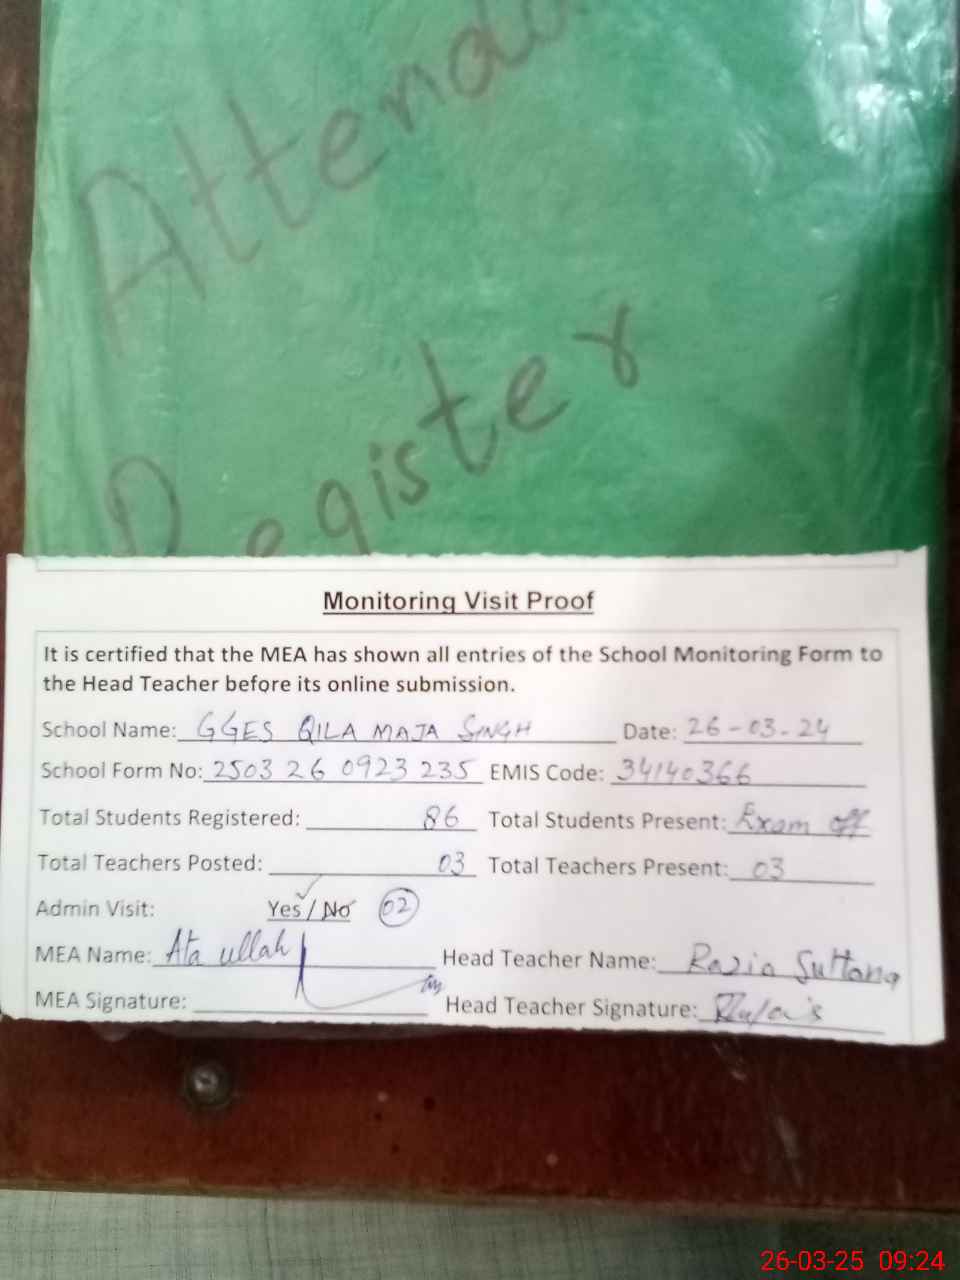 Attenda
Register
Monitoring Visit Proof
It is certified that the MEA has shown all entries of the School Monitoring Form to
the Head Teacher before its online submission.
School Name: GGES QILA MAJA SINGH Date: 26-03-24
School Form No: 2503 26 0923 235 EMIS Code: 34140366
Total Students Registered: 86 Total Students Present: Exam off
Total Teachers Posted: 03 Total Teachers Present: 03
Admin Visit: Yes / No 02
MEA Name: Ata ullah Head Teacher Name: Razia Sultana
MEA Signature: Head Teacher Signature:
26-03-25 09:24